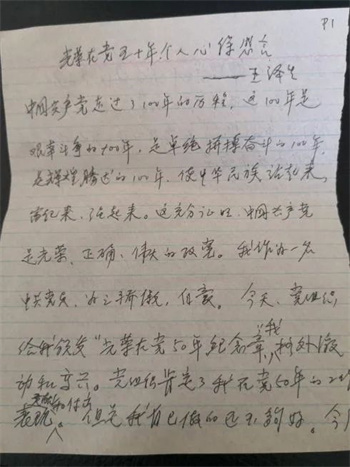 P1
光荣在党五十年个人心得感言
——王泽生
中国共产党走过了100年的历程,这100年是
艰辛斗争的100年,是卓绝拼搏奋斗的100年,
是辉煌腾达的100年,使中华民族站起来,
富起来,强起来。这充分证明,中国共产党
是光荣、正确、伟大的政党。我作为一名
中共党员,为之骄傲,自豪。今天,党组织
给我颁发“光荣在党50年纪念章”,我格外激
动和高兴。党组织肯定了我在党50年的工作
表现和付出。但是我自己做的还不够好。今